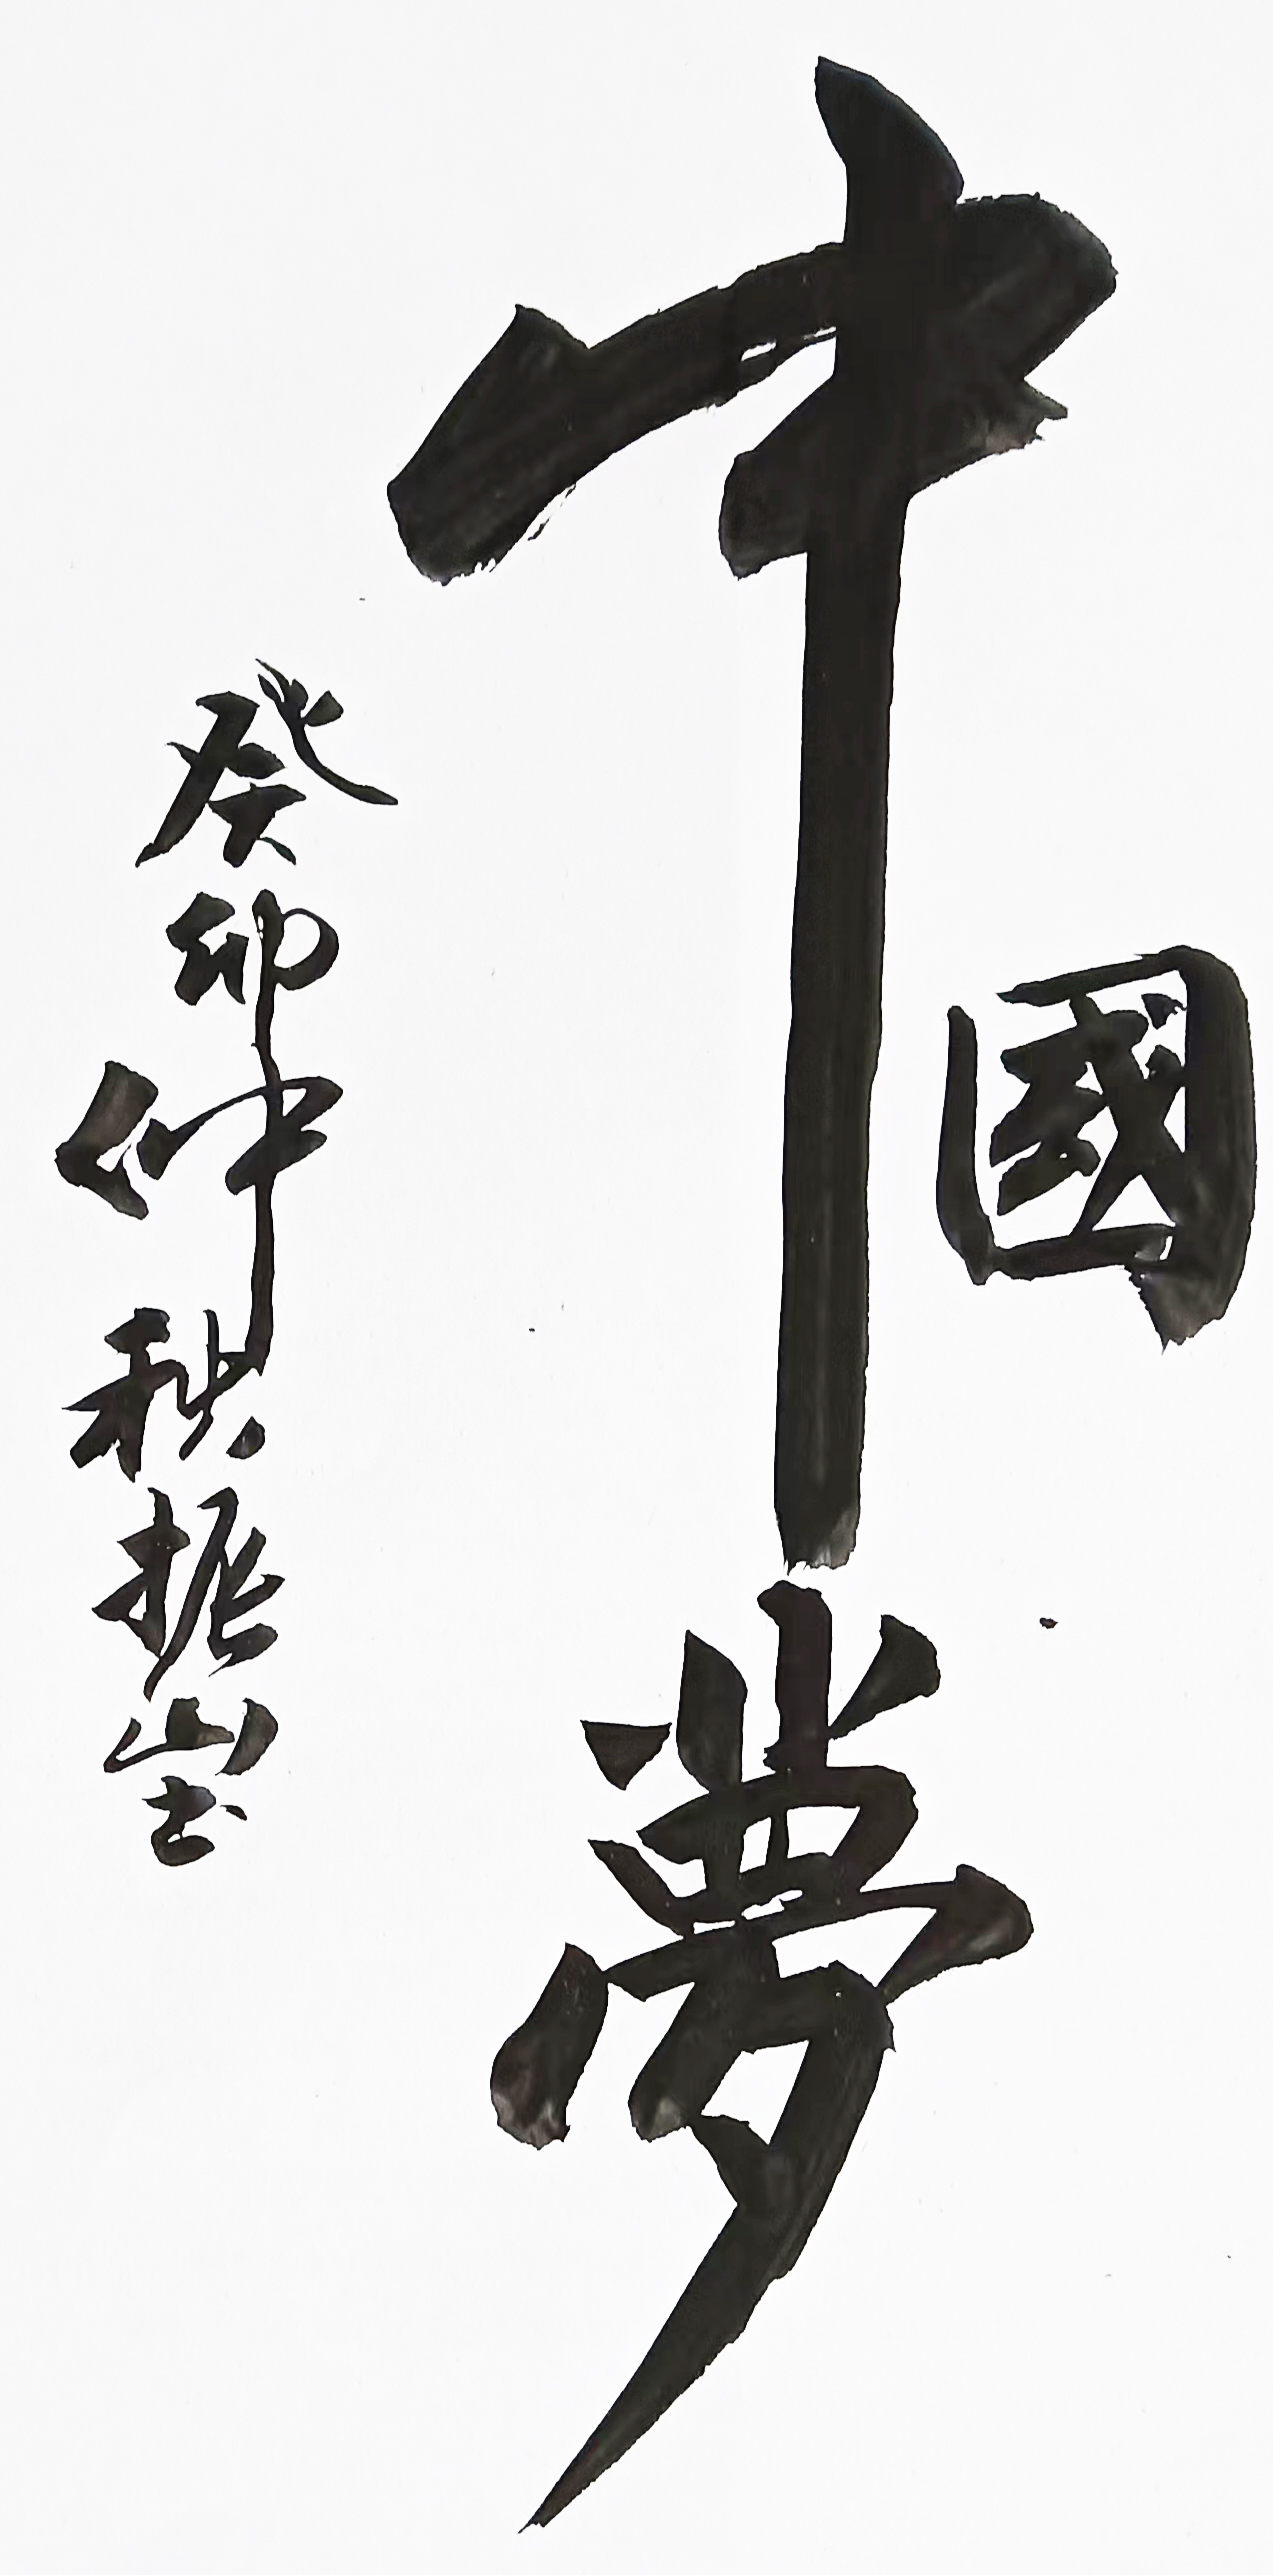 中國夢
癸卯仲秋振山书